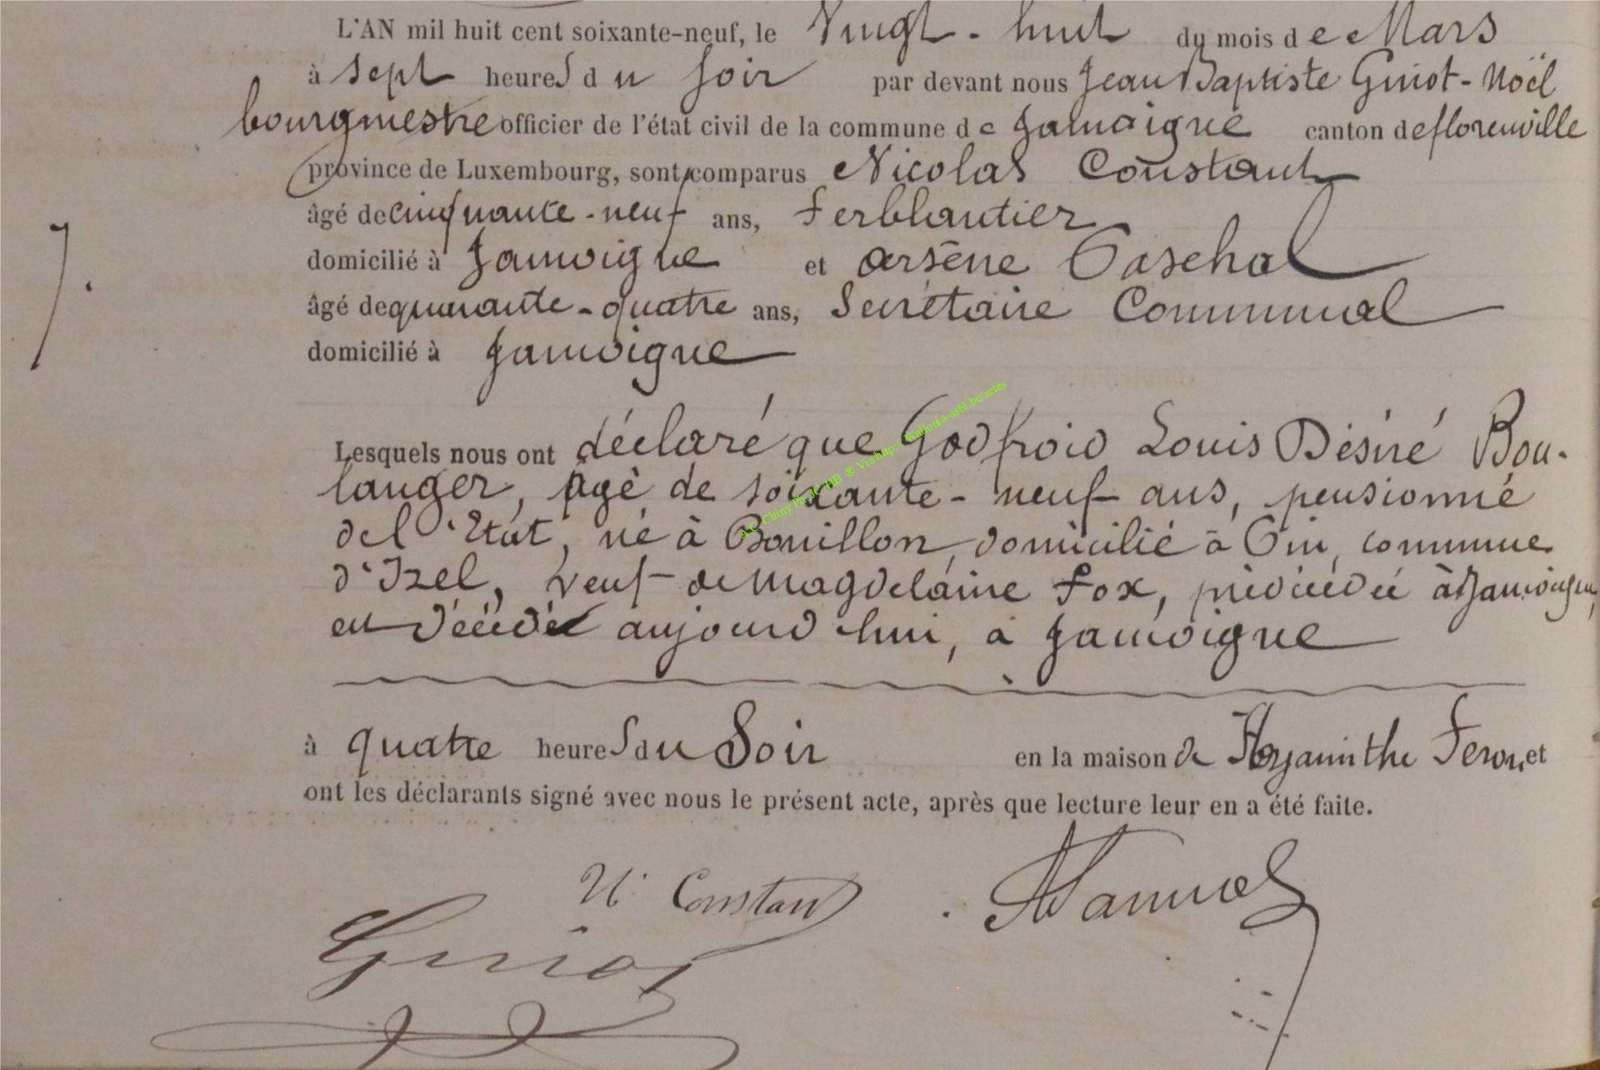 L'AN mil huit cent soixante-neuf, le Vingt-huit du mois de Mars
à Sept heures du soir par devant nous Jean Baptiste Guiot-Noël
bourgmestre officier de l'état civil de la commune de Jamoigne canton de florenville
province de Luxembourg, sont comparus Nicolas Constant
âgé de cinquante-neuf ans, ferblantier
domicilié à Jamoigne et arsène Paschal
7.
âgé de quarante-quatre ans, Secrétaire Communal
domicilié à Jamoigne
Lesquels nous ont déclaré que Godfroid Louis Désiré Bou-
langer, âgé de soixante-neuf ans, pensionné
de l'Etat, né à Bouillon, domicilié à Pin, commune
d'Izel, veuf de Magdelaine Fox, prédécédée à Jamoigne,
est décédé aujourd'hui, à Jamoigne
à quatre heures du Soir en la maison de Hyacinthe Feron, et
ont les déclarants signé avec nous le présent acte, après que lecture leur en a été faite.
N. Constant
Guiot